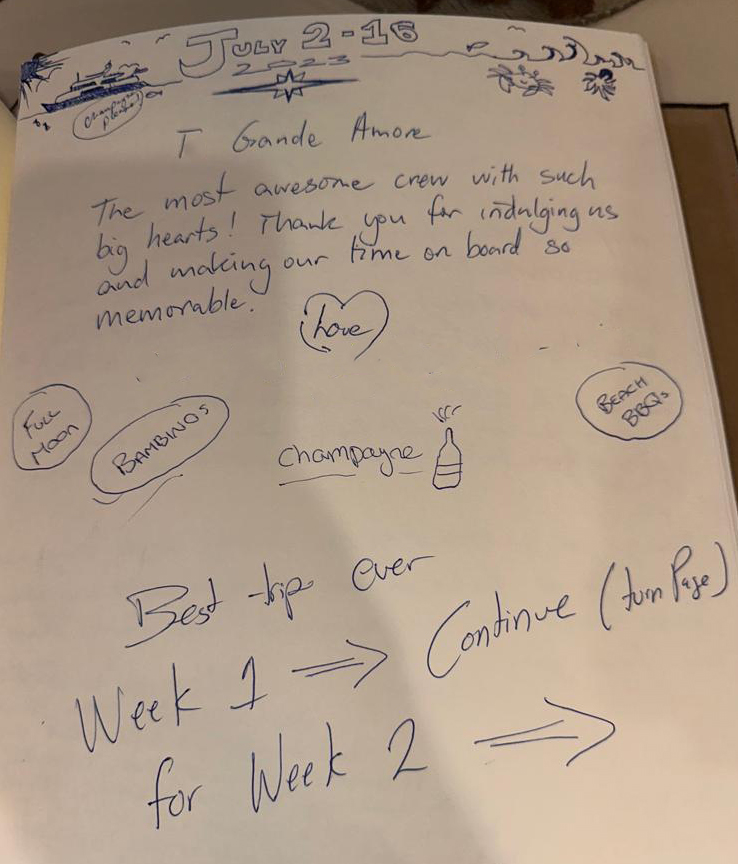 JULY 2-16
2023
Champagne please!
T Gande Amore
The most awesome crew with such
big hearts! Thank you for indulging us
and making our time on board so
memorable.
Love
FULL
MOON
BAMBINOS
champagne
BEACH
BBQs
Best trip ever
Week 1 ⇒ Continue (turn Page)
for Week 2 ⇒